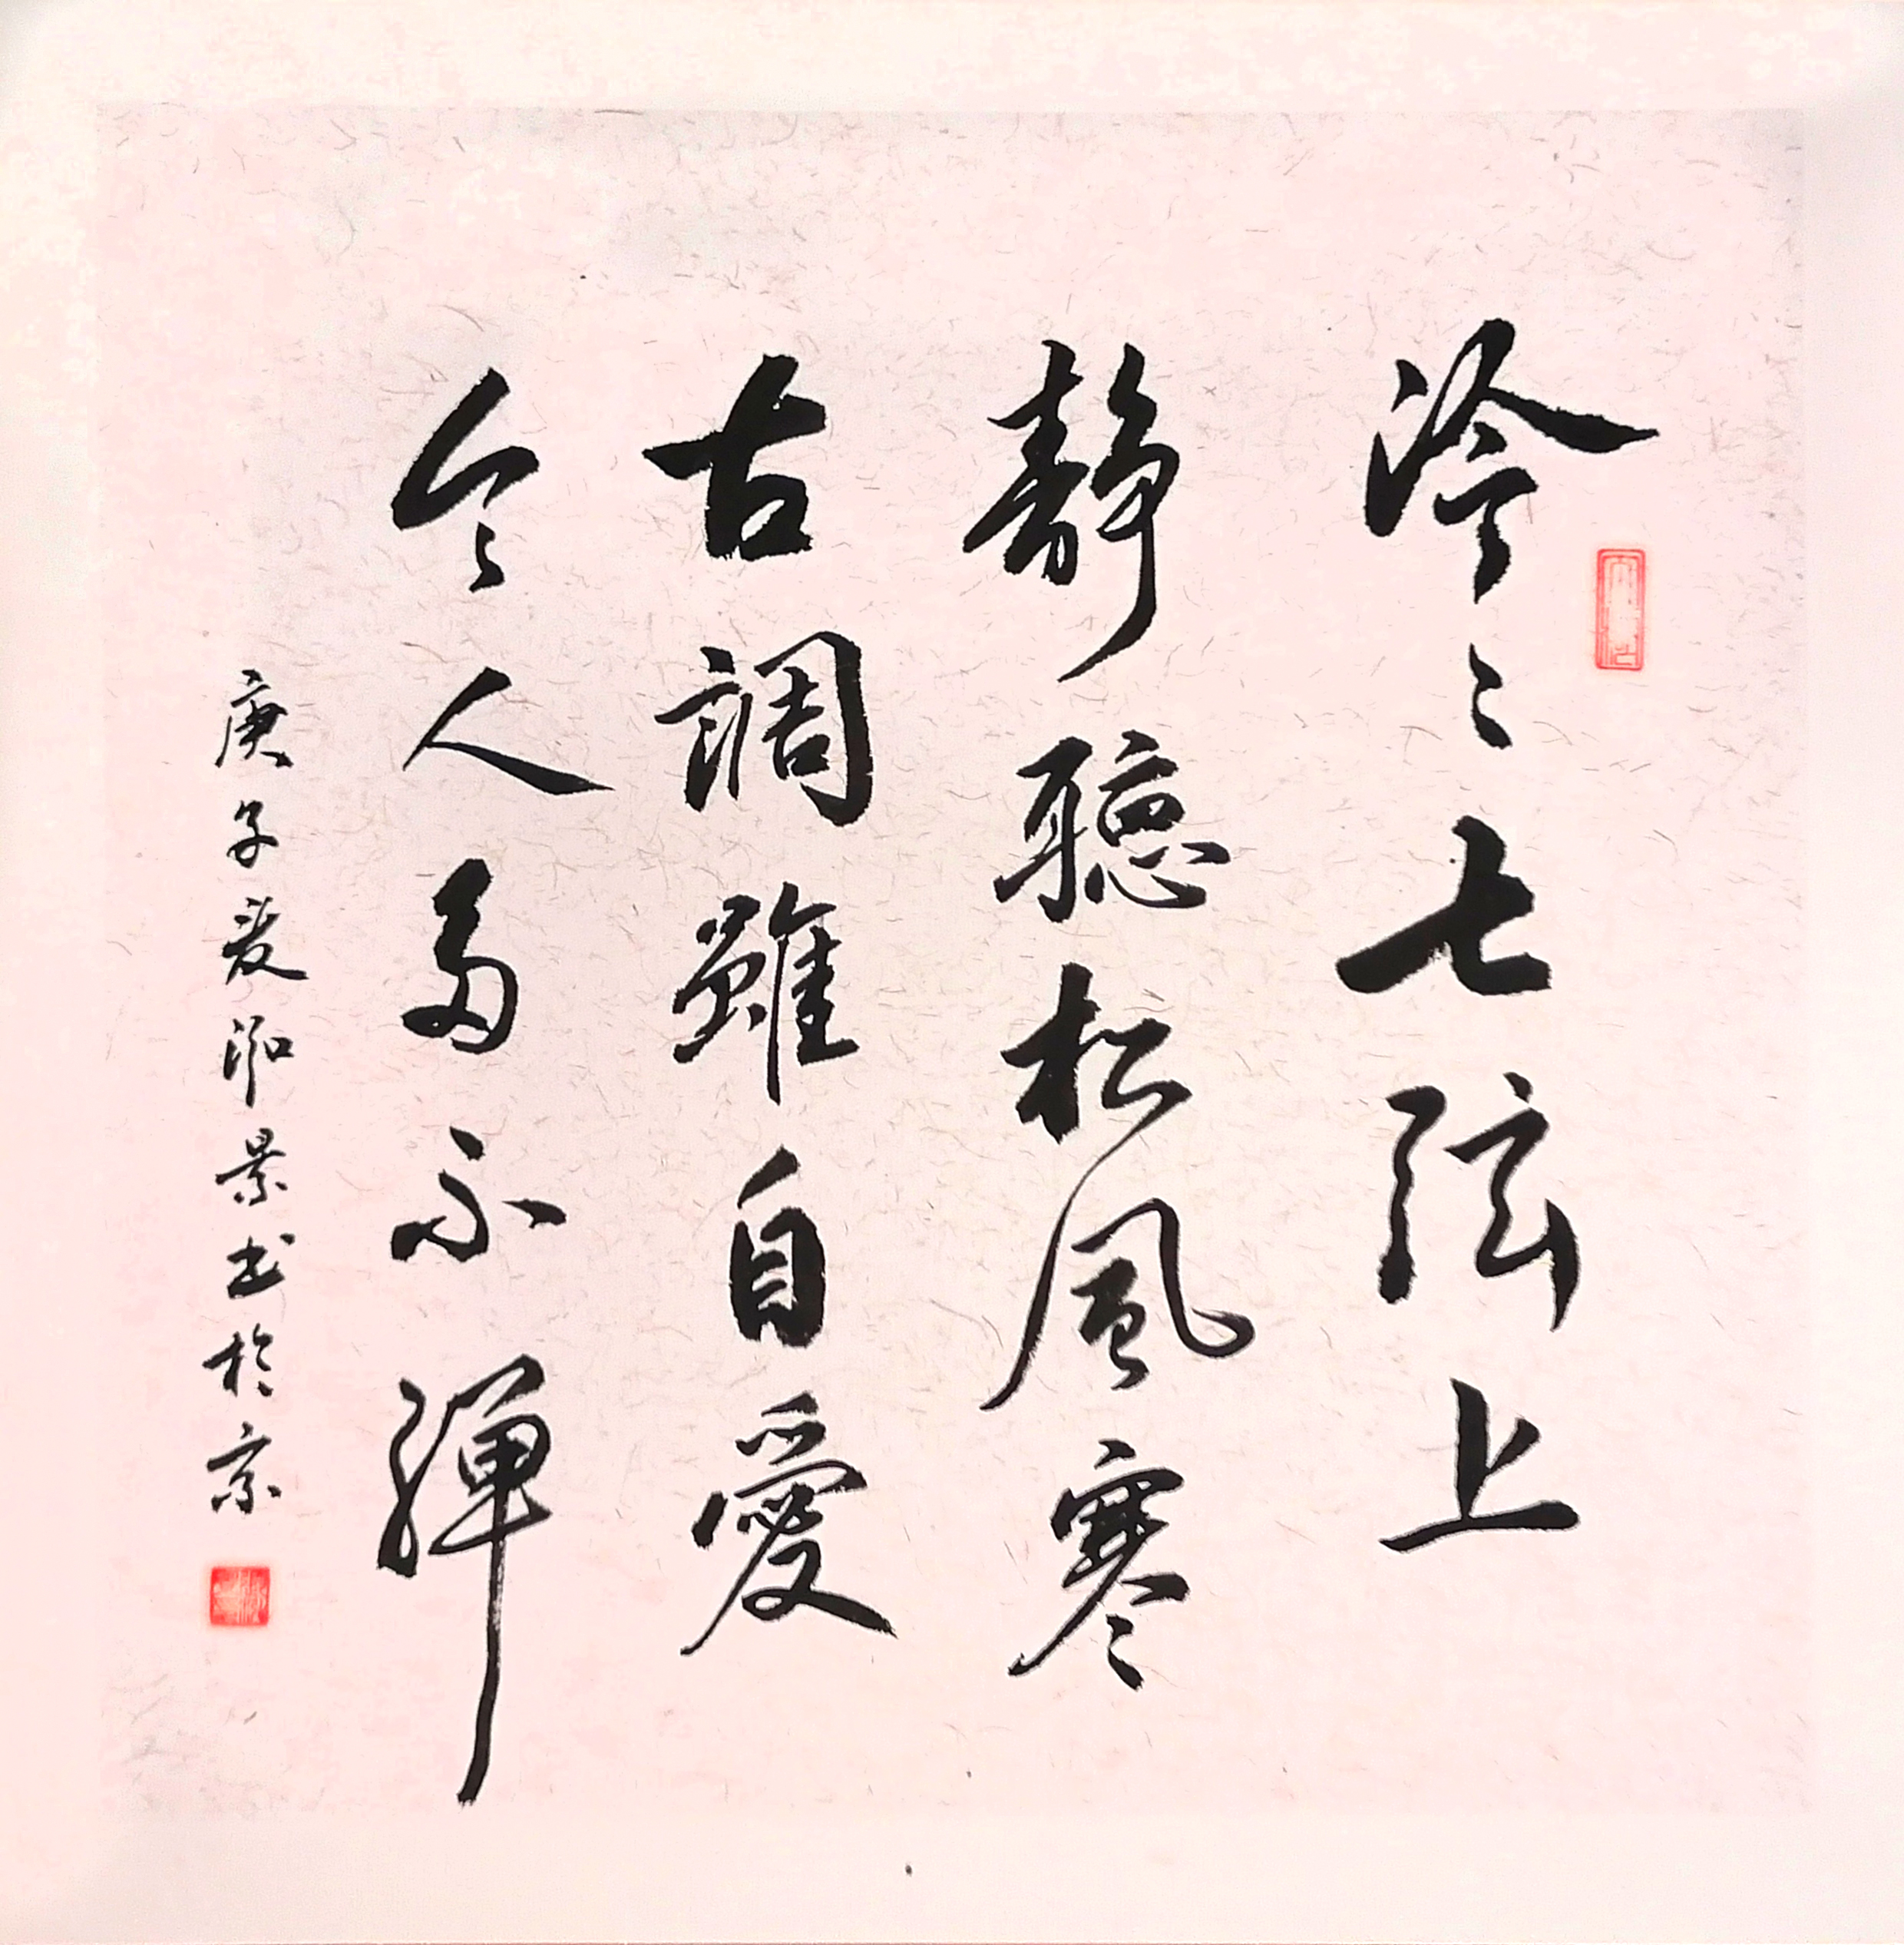 泠々七弦上
靜聽松風寒
古調雖自愛
今人多不彈
庚子夏泓景书於京